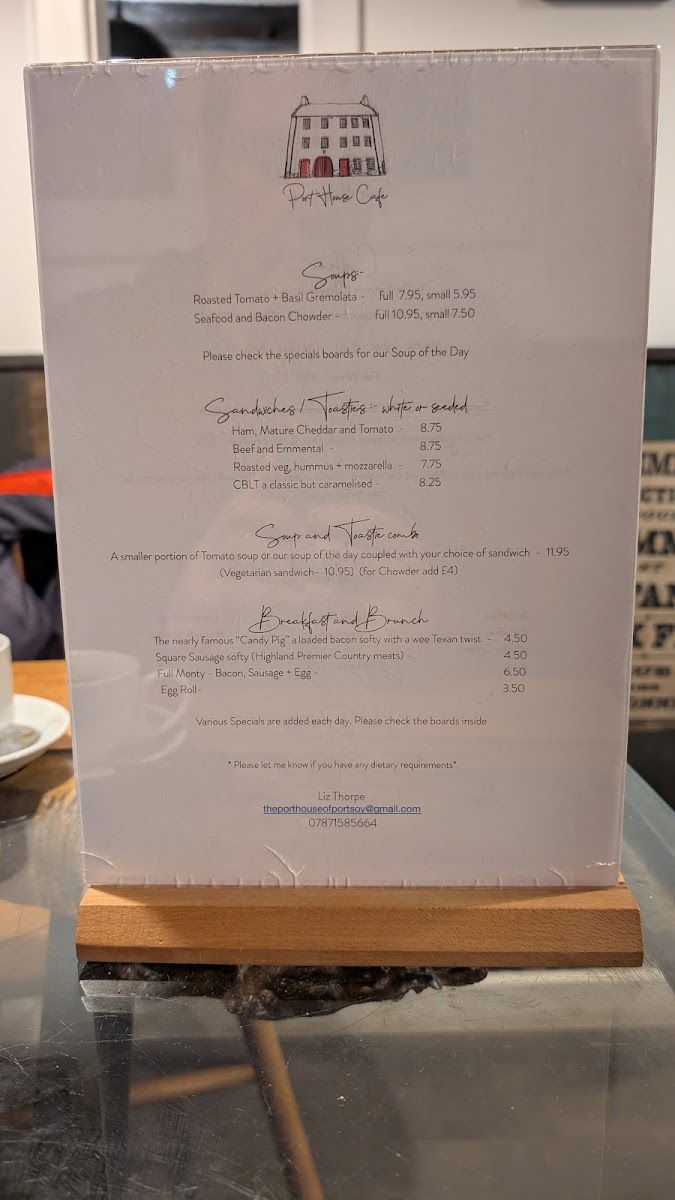 Port House Cafe
Soups-
Roasted Tomato + Basil Gremolata - full 7.95, small 5.95
Seafood and Bacon Chowder - full 10.95, small 7.50
Please check the specials boards for our Soup of the Day
Sandwiches / Toasties:- white or seeded
Ham, Mature Cheddar and Tomato - 8.75
Beef and Emmental - 8.75
Roasted veg, hummus + mozzarella - 7.75
CBLT a classic but caramelised - 8.25
Soup and Toastie combo
A smaller portion of Tomato soup or our soup of the day coupled with your choice of sandwich - 11.95
(Vegetarian sandwich- 10.95) (for Chowder add £4)
Breakfast and Brunch
The nearly famous "Candy Pig" a loaded bacon softy with a wee Texan twist - 4.50
Square Sausage softy (Highland Premier Country meats) - 4.50
Full Monty - Bacon, Sausage + Egg - 6.50
Egg Roll- 3.50
Various Specials are added each day. Please check the boards inside
* Please let me know if you have any dietary requirements*
Liz Thorpe
theporthouseofportsoy@gmail.com
07871585664